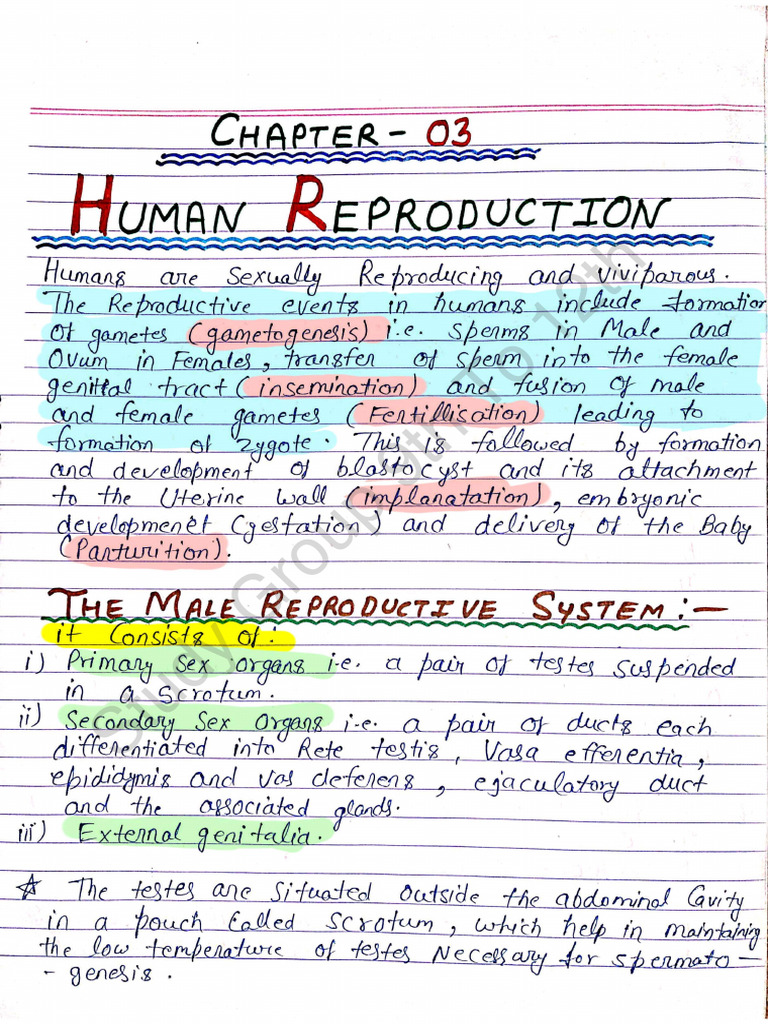 CHAPTER - 03
HUMAN REPRODUCTION
Humans are sexually Reproducing and viviparous.
The Reproductive events in humans include formation
of gametes (gametogenesis) i.e. sperms in Male and
Ovum in Females, transfer of sperm into the female
genital tract (insemination) and fusion of male
and female gametes (Fertillisation) leading to
formation of zygote. This is followed by formation
and development of blastocyst and its attachment
to the Uterine wall (implanatation), embryonic
development (gestation) and delivery of the Baby
(Parturition).
THE MALE REPRODUCTIVE SYSTEM :-
it consists of:
i) Primary sex organs i.e. a pair of testes suspended
in a scrotum.
ii) Secondary sex organs i.e. a pair of ducts each
differentiated into Rete testis, Vasa efferentia,
epididymis and vas deferens, ejaculatory duct
and the associated glands.
iii) External genitalia.
☆ The testes are situated outside the abdominal cavity
in a pouch called scrotum, which help in maintaining
the low temperature of testes necessary for spermato -
- genesis.
Study Group 9th To 12th